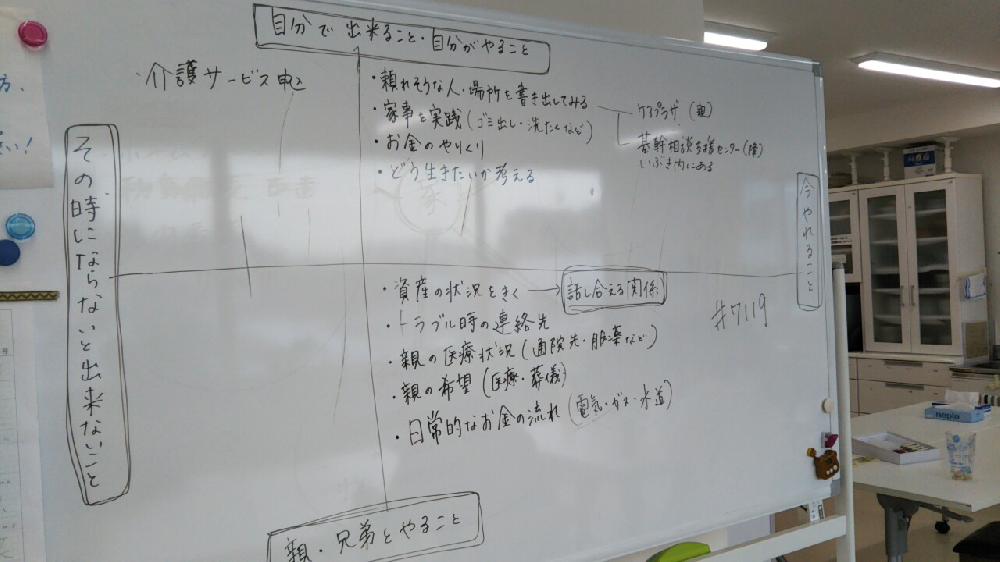 自分で出来ること・自分がやること
・介護サービス申込
・頼れそうな人・場所を書き出してみる
・家事を実践(ゴミ出し・洗たくなど)
・お金のやりくり
・どう生きたいか考える
ケアプラザ(親)
基幹相談支援センター(障)
いぶき内にある
その時にならないと出来ないこと
今やれること
・資産の状況をきく → 話し合える関係
・トラブル時の連絡先
・親の医療状況(通院先・服薬など)
・親の希望(医療・葬儀)
・日常的なお金の流れ(電気・ガス・水道)
#7119
親・兄弟とやること
方、
い!
nepia